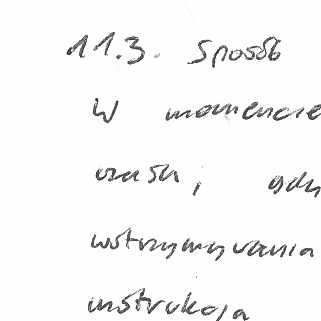 11.3. Sposób
W momencie
czasu, gdy
wstrzymywania
instrukcja